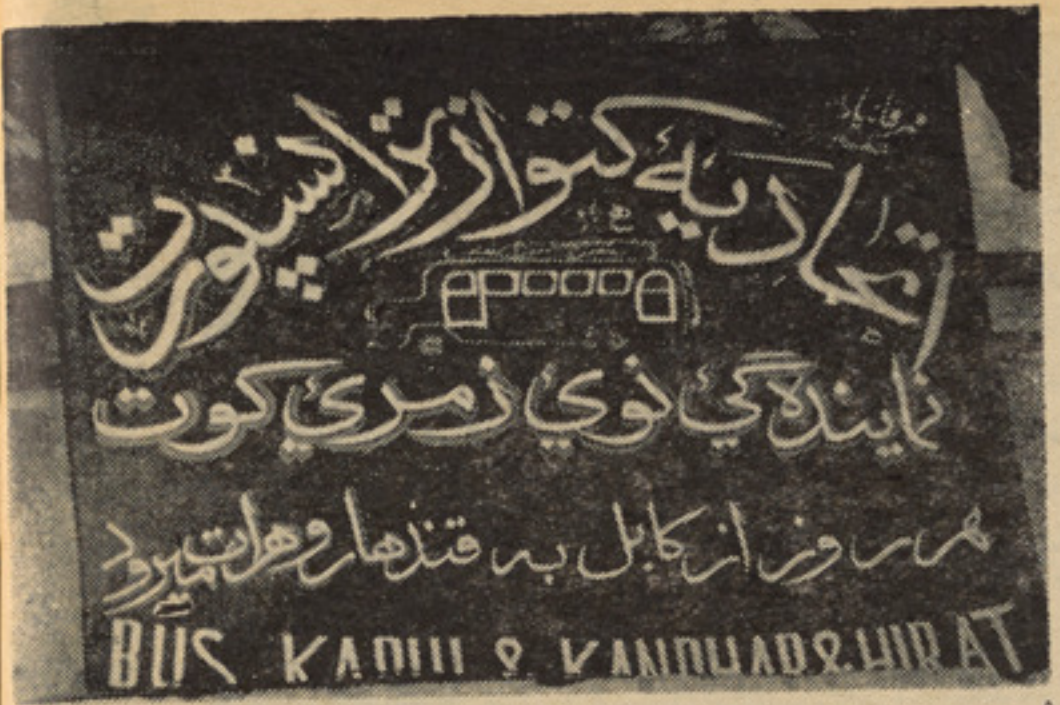 اتحادیهٔ کتواز ترانسپورت
نمایندهگیٔ نوي زمري کوت
هر روز از کابل به قندهار و هرات میرود
BUS KABUL & KANDHAR & HIRAT